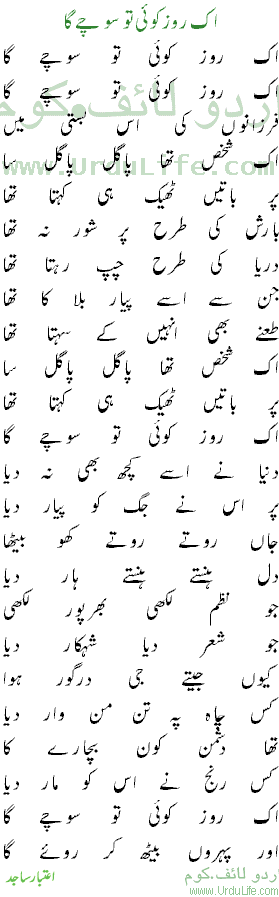 اک روز کوئی تو سوچے گا
اک روز کوئی تو سوچے گا
اک روز کوئی تو سوچے گا
اردو لائف۔کوم
فرزانوں کی اس بستی میں
اک شخص تھا پاگل پاگل سا
www.UrduLife.com
پر باتیں ٹھیک ہی کہتا تھا
بارش کی طرح پر شور نہ تھا
دریا کی طرح چپ رہتا تھا
جن سے اسے پیار بلا کا تھا
طعنے بھی انہیں کے سہتا تھا
اک شخص تھا پاگل پاگل سا
پر باتیں ٹھیک ہی کہتا تھا
اک روز کوئی تو سوچے گا
دنیا نے اسے کچھ بھی نہ دیا
پر اس نے جگ کو پیار دیا
جاں روتے روتے کھو بیٹھا
دل ہنستے ہنستے ہار دیا
جو نظم لکھی بھرپور لکھی
جو شعر دیا شہکار دیا
کیوں جیتے جی درگور ہوا
کس چاہ پہ تن من وار دیا
تھا دشمن کون بچارے کا
کس رنج نے اس کو مار دیا
اک روز کوئی تو سوچے گا
اور پہروں بیٹھ کر روئے گا
اعتبار ساجد
اردو لائف۔کوم
www.UrduLife.com